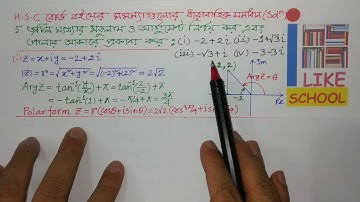 H.S.C বোর্ড বইয়ের সমস্যাগুলোর ধারাবাহিক সমাধান (Solⁿ)
5. জটিল সংখ্যার মডুলাস ও আর্গুমেন্ট নির্ণয় কর এবং
পোলার আকারে প্রকাশ কর : (i) -2+2i (ii) -1+√3i
(iii) -√3+i (iv) -3-3i
(i) z = x+iy = -2+2i
|z| = r = √x²+y² = √(-2)²+(2)² = 2√2
Arg z = tan⁻¹(y/x)+π = tan⁻¹(2/-2)+π
= -tan⁻¹(1)+π = -π/4+π = 3π/4
Polar form z = r(cosθ+isinθ) = 2√2(cos 3π/4 + i sin 3π/4)
2,2)
Im
Arg z = θ
-2
Re
LIKE
SCHOOL